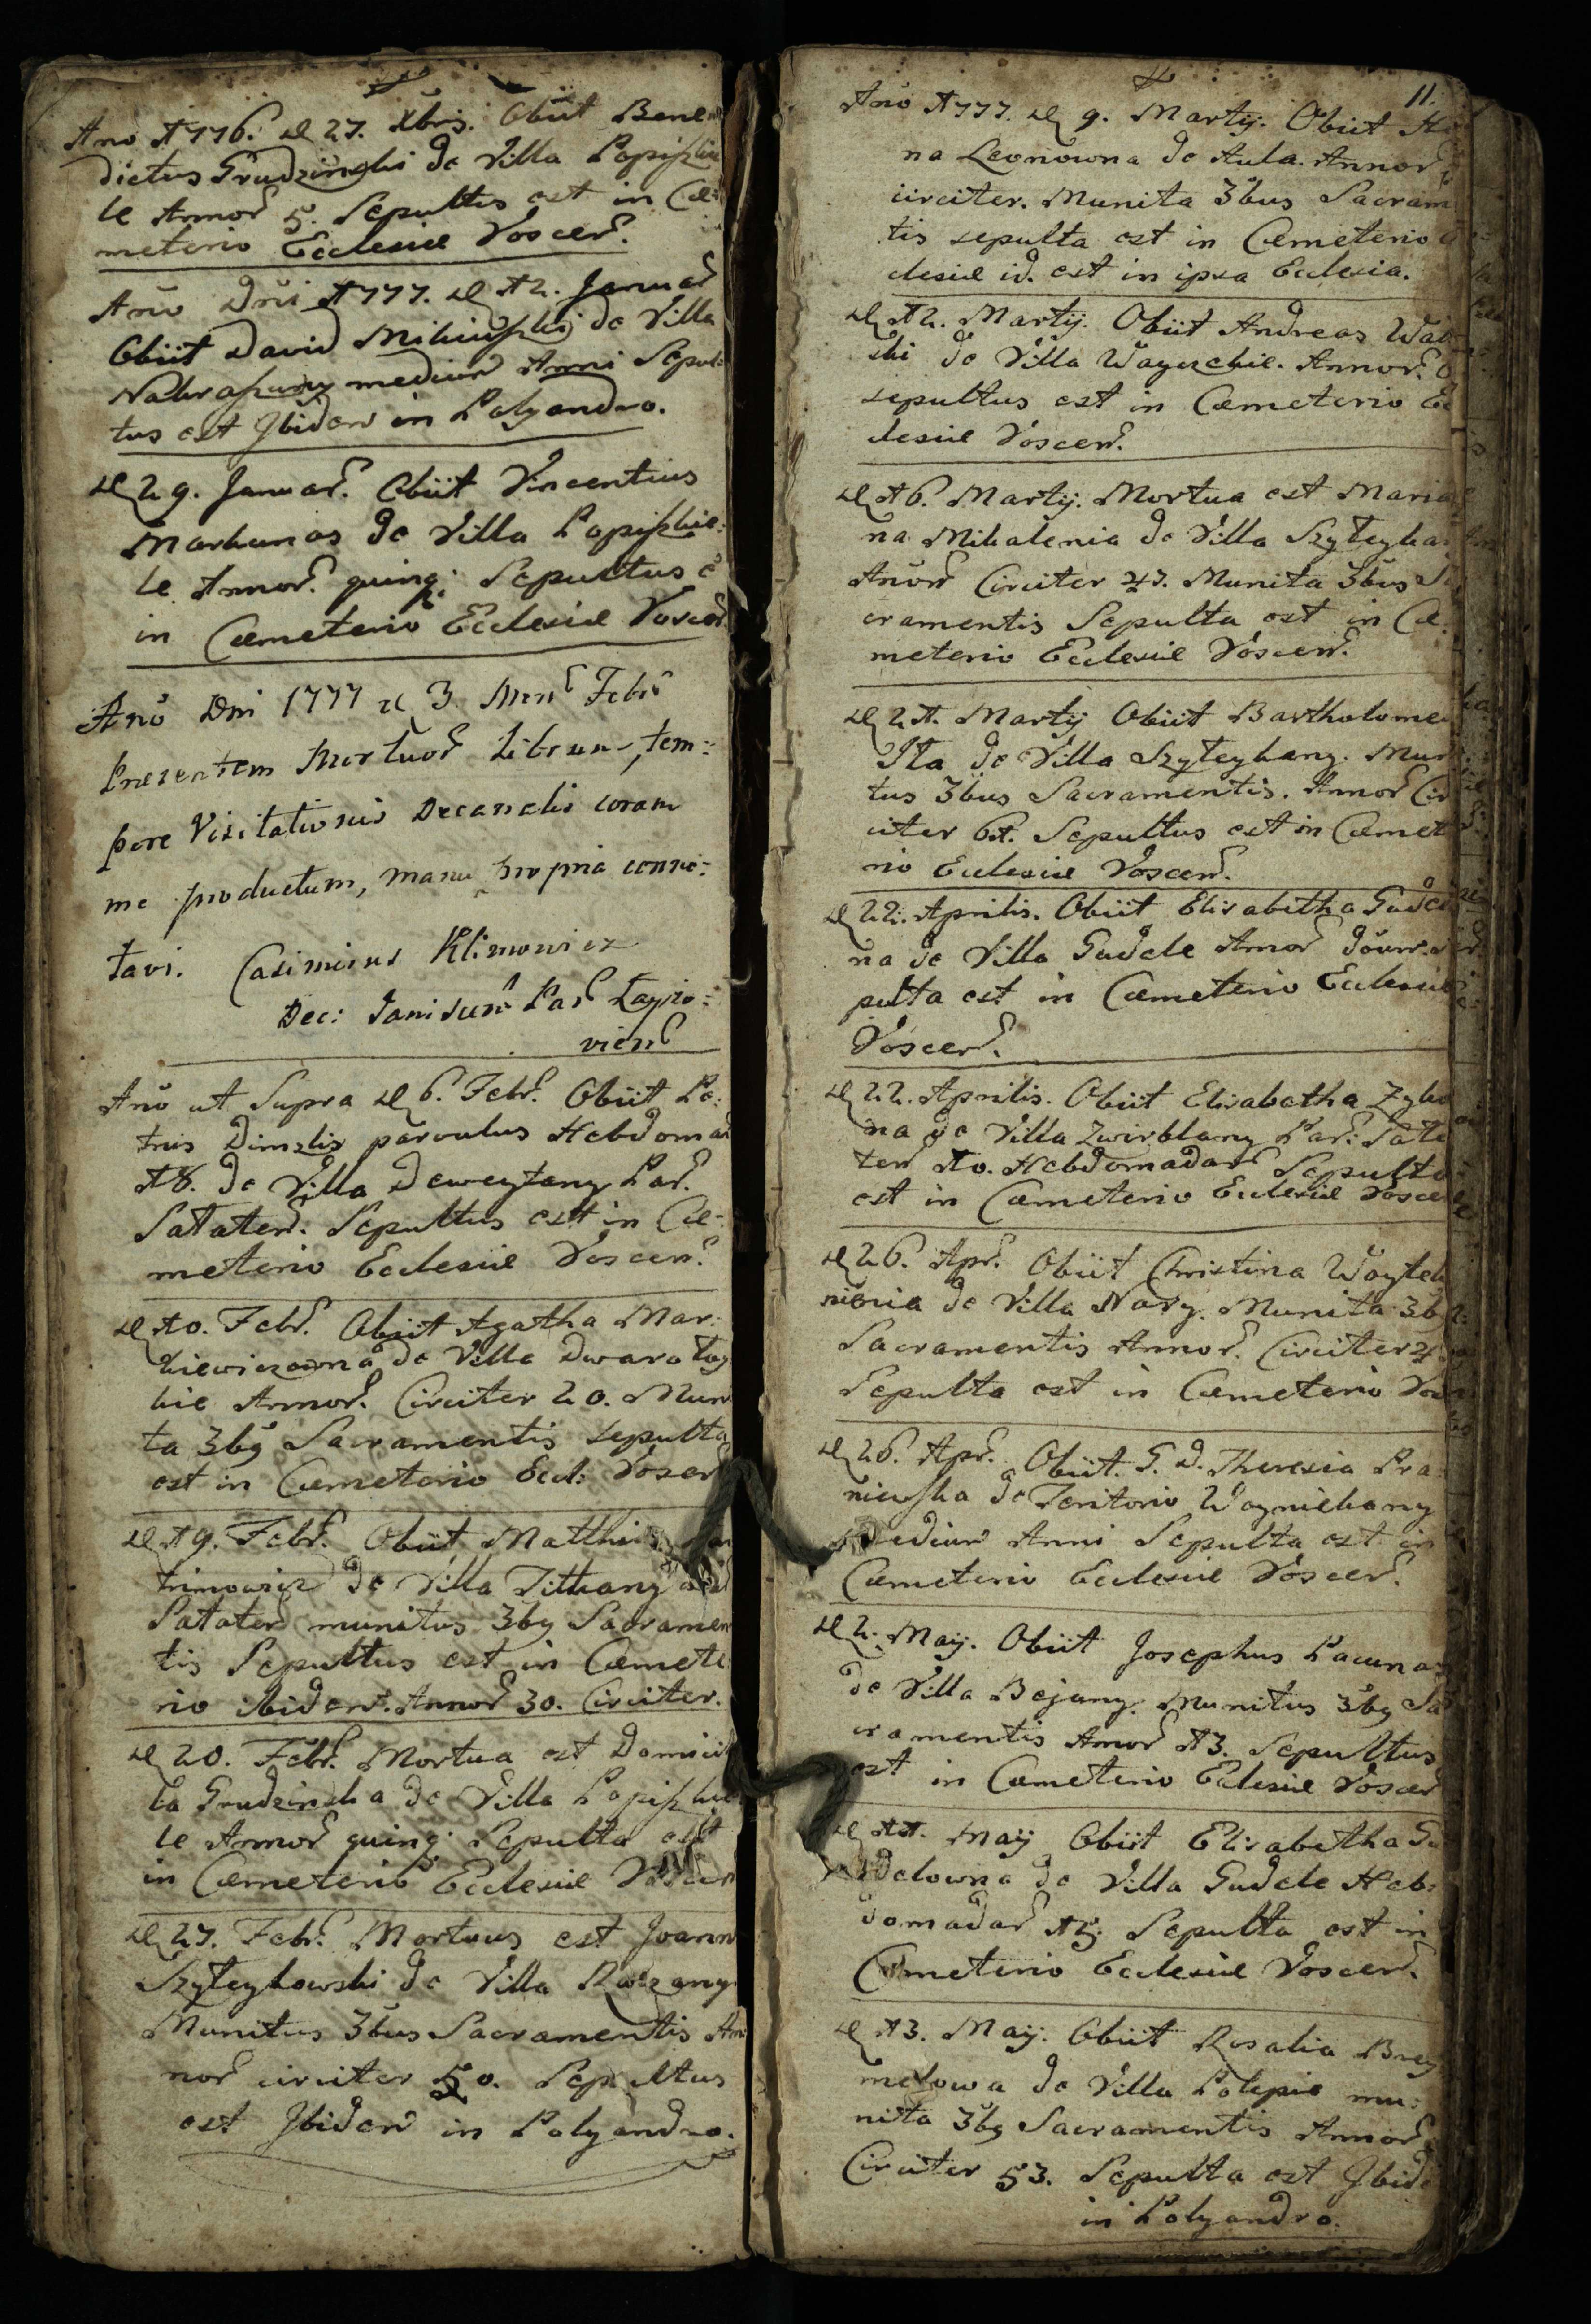 Ano 1776. d 27. Xbris. Obiit Bene
dictus Grudzinski de Villa Popiszkie
le Annor 5. Sepultus est in Cæ:
meterio Ecclesiæ Voscen.
Ano Dni 1777. d 12. Januar
Obiit David de Villa
medium Anni Sepul:
tus est Ibidem in Polyandro.
d 29. Januar. Obiit Vincentius
Markunas de Villa Popiszkie:
le Annor. quinq: Sepultus e
in Cæmeterio Ecclesiæ Voscen
Ano Dni 1777 d 3 Men Febr
Presentem Mortuor Librum, tem:
pore Visitationis Decanalis coram
me productum, manu propria conno:
tavi. Casimirus Klimowicz
Dec: Par
vien
Ano ut Supra d 6. Febr. Obiit Pe:
trus Dimzlis parvulus Hebdomad
18. de Villa Deweytany Par.
Sataten. Sepultus est in Cæ-
meterio Ecclesiæ Voscen.
d 10. Febr. Obiit Agatha Mar:
kiewiczowna de Villa
kie Annor. Circiter 20. Muni
ta 3bg Sacramentis sepulta
est in Cæmeterio Eccl: Voscen
d 19. Febr. Obiit Matthias
trimowicz de Villa Titkany
Sataten munitus 3bg Sacramen
tis Sepultus est in Cæmete
rio ibidem. Annor 30. Circiter.
d 20. Febr. Mortua est Domicil
la Grudzinska de Villa Popiszkie
le Annor quinq: Sepulta est
in Cæmeterio Ecclesiæ Voscen
d 27. Febr. Mortuus est Joann
Szyleykowski de Villa
Munitus 3bus Sacramentis An
nor circiter 50. Sepultus
est Ibidem in Polyandro.
11.
Ano 1777. d 9. Martij. Obiit
na Leonowna de Aula. Annor
circiter. Munita 3bus Sacram
tis sepulta est in Cæmeterio
clesiæ id. est in ipsa Ecclesia.
d 12. Martij. Obiit Andreas
ski de Villa Annor.
sepultus est in Cæmeterio Ec
clesiæ Voscen.
d 16. Martij. Mortua est Maria
na Mikalenia de Villa
Anor Circiter 47. Munita 3bus Sa
cramentis Sepulta est in Cæ:
meterio Ecclesiæ Voscen.
d 21. Martij Obiit Bartholome
de Villa Szyleykany. Muni
tus 3bus Sacramentis. Annor Cir
citer 61. Sepultus est in Cæmet
rio Ecclesiæ Voscen.
d 22. Aprilis. Obiit Elisabetha
na de Villa Gudele Annor
pulta est in Cæmeterio Ecclesiæ
Voscen.
d 22. Aprilis. Obiit Elisabetha
na de Villa Zwirblany Par: Sata
ten 10. Hebdomadar Sepulta
est in Cæmeterio Ecclesiæ Voscen
d 26. Apr. Obiit Christina
niovia de Villa Nary. Munita 3b
Sacramentis Annor. Circiter
Sepulta est in Cæmeterio Vos
d 26. Apr. Obiit. G. D. Theresia Pra
niewska de Teritorio
Medium Anni Sepulta est in
Cæmeterio Ecclesiæ Voscen.
d 2. Maij. Obiit Josephus Pacunas
de Villa Bejany. Munitus 3bg Sa
cramentis Annor 13. Sepultus
est in Cæmeterio Eclesiæ Voscen
d 11. Maij Obiit Elisabetha Gu
delowna de Villa Gudele Heb:
domadar 15. Sepulta est in
Cæmeterio Ecclesiæ Voscen.
d 13. Maij. Obiit Rosalia Brey
melowa de Villa Polepie mu:
nita 3bg Sacramentis Annor
Circiter 53. Sepulta est Ibide
in Polyandro.